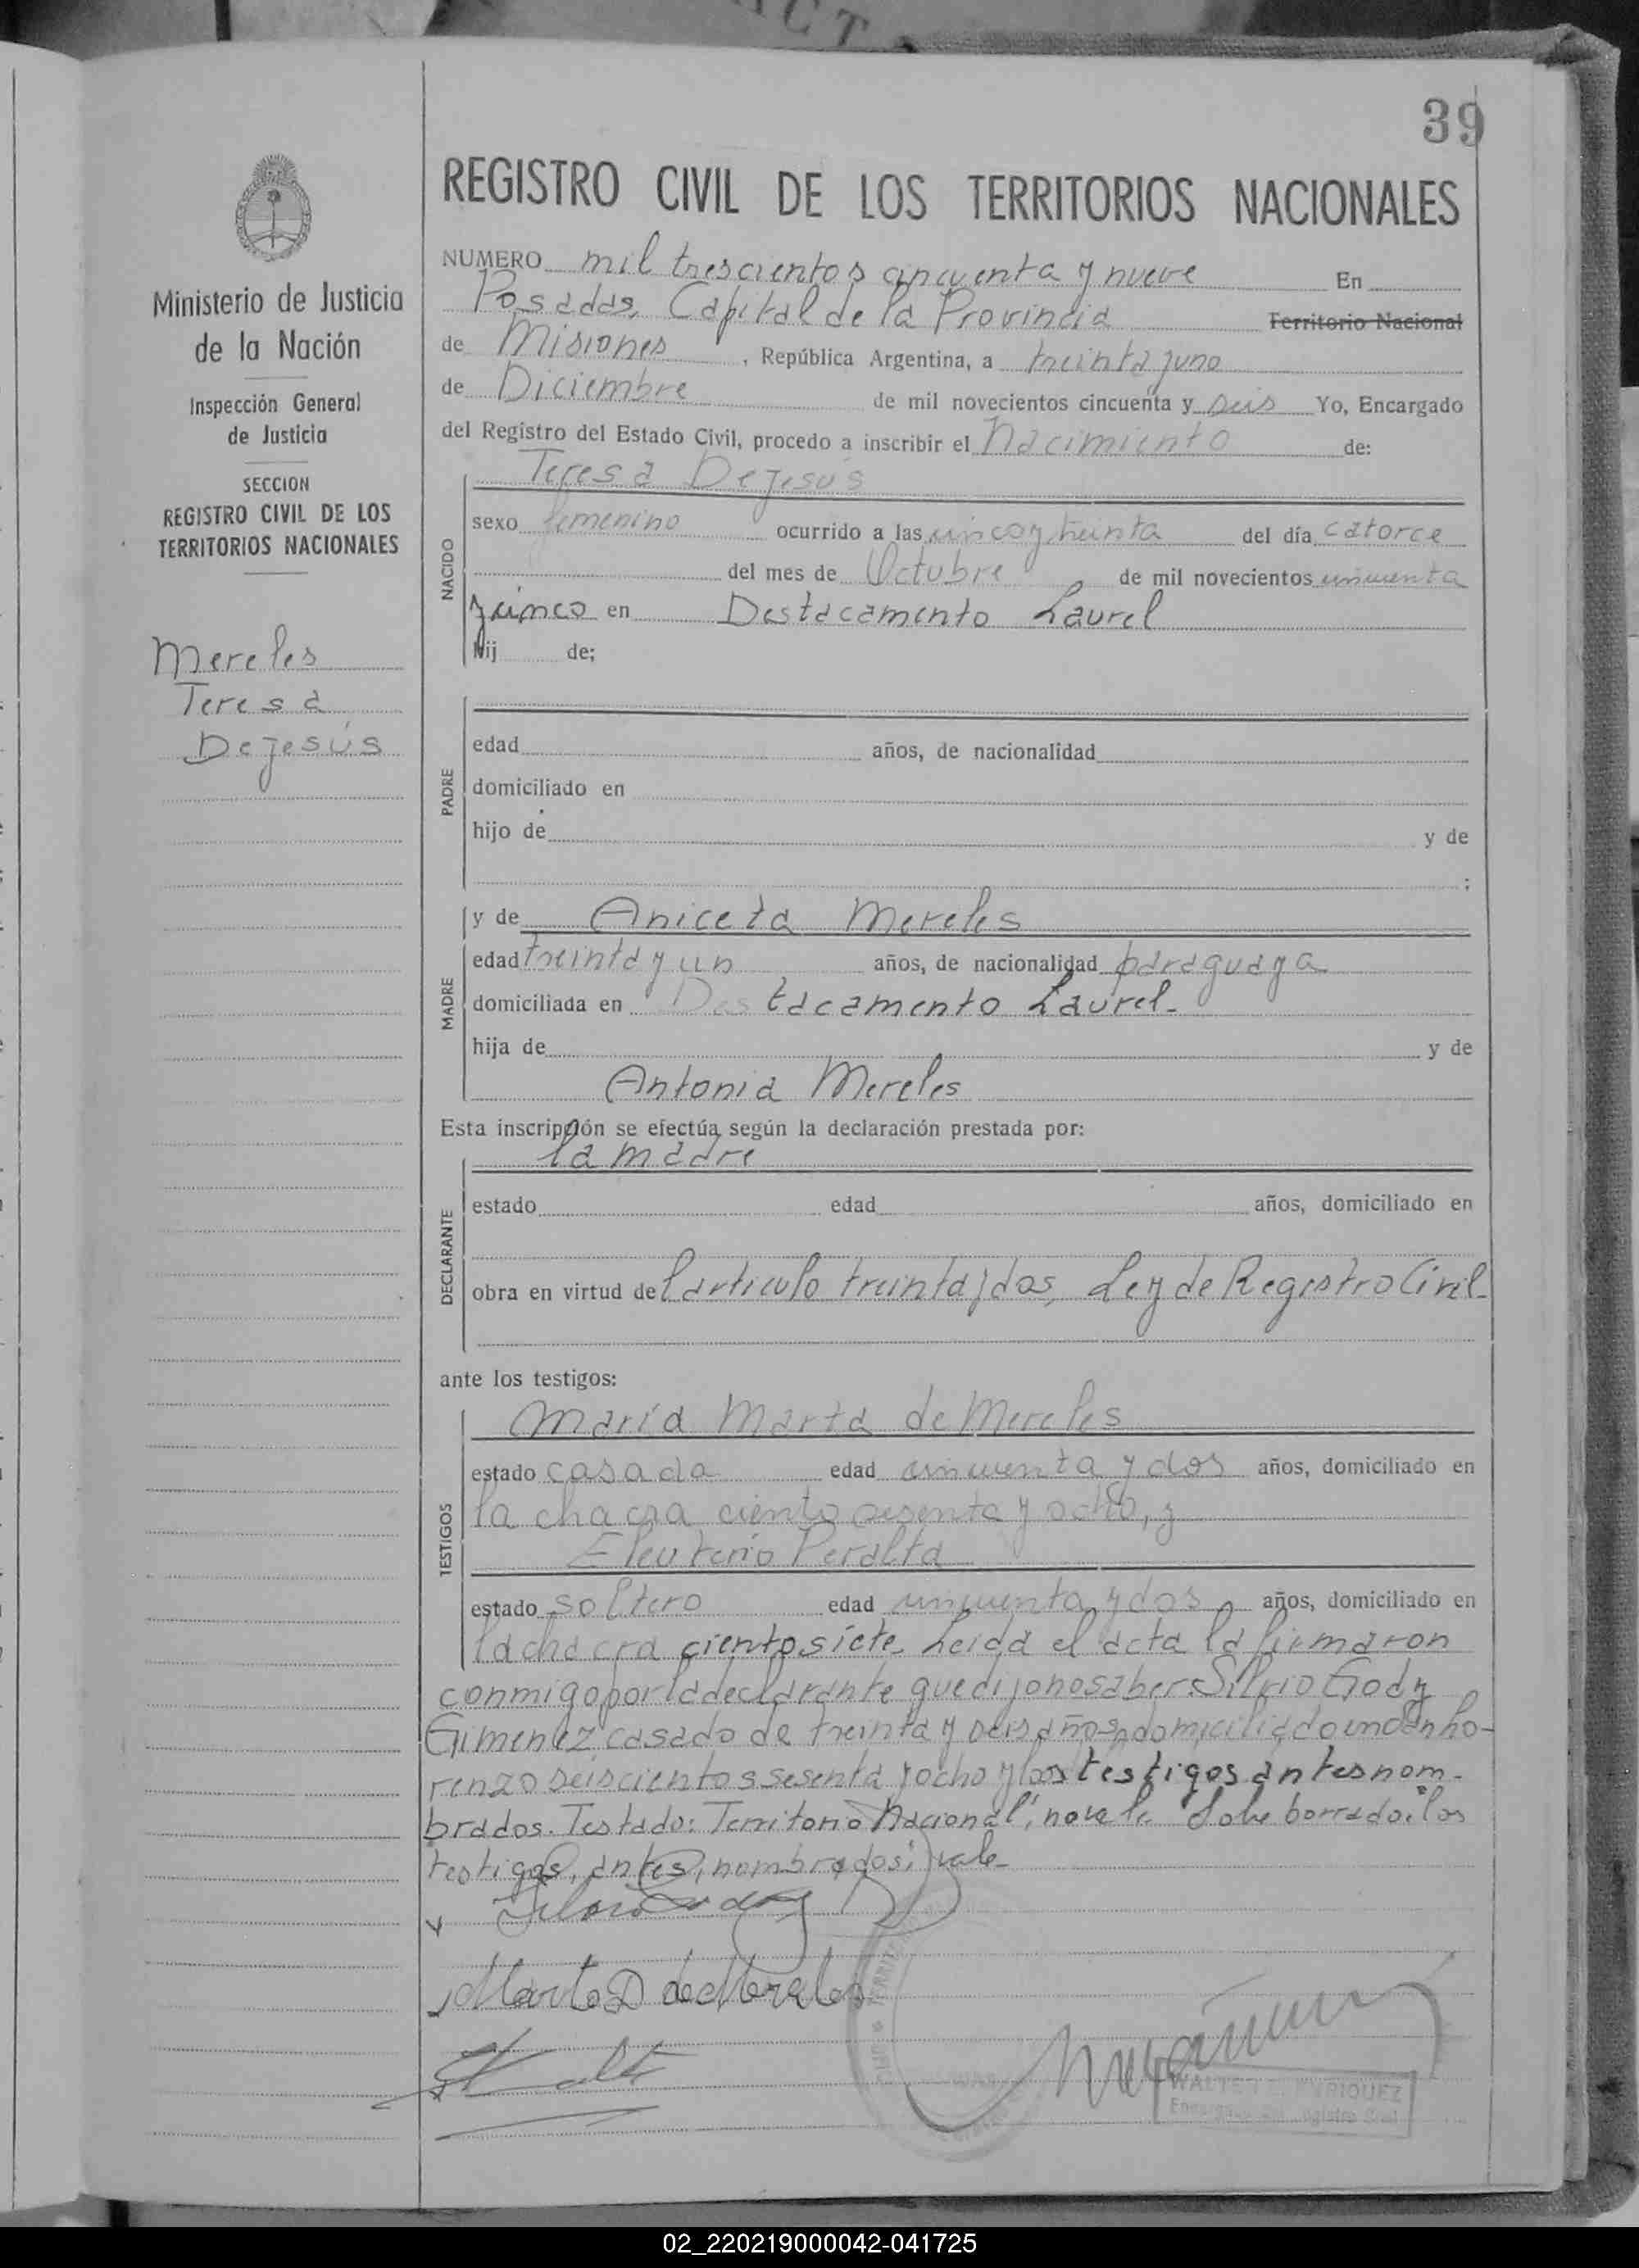 39
REGISTRO CIVIL DE LOS TERRITORIOS NACIONALES
Ministerio de Justicia
de la Nación
Inspección General
de Justicia
SECCION
REGISTRO CIVIL DE LOS
TERRITORIOS NACIONALES
Mereles
Teresa
Dejesús
NUMERO mil trescientos cincuenta y nueve En
Posadas, Capital de la Provincia Territorio Nacional
de Misiones, República Argentina, a treinta y uno
de Diciembre de mil novecientos cincuenta y seis Yo, Encargado
del Registro del Estado Civil, procedo a inscribir el Nacimiento de:
NACIDO
Teresa Dejesús
sexo femenino ocurrido a las cinco y treinta del día catorce
del mes de Octubre de mil novecientos cincuenta
y cinco en Destacamento Laurel
hij de;
PADRE
edad años, de nacionalidad
domiciliado en
hijo de y de
;
MADRE
y de Aniceta Mereles
edad treinta y un años, de nacionalidad paraguaya
domiciliada en Destacamento Laurel.
hija de y de
Antonia Mereles
Esta inscripción se efectúa según la declaración prestada por:
DECLARANTE
la madre
estado edad años, domiciliado en
obra en virtud del artículo treinta y dos, Ley de Registro Civil.
ante los testigos:
TESTIGOS
María Marta de Mereles
estado casada edad cincuenta y dos años, domiciliado en
la chacra ciento sesenta y ocho, y
Eleuterio Peralta
estado soltero edad cincuenta y dos años, domiciliado en
la chacra ciento siete. Leida el acta la firmaron
conmigo por la declarante que dijo no saber: Silvio Godoy
Gimenez casado de treinta y seis años domiciliado en San Lo-
renzo seiscientos sesenta y ocho y los testigos antes nom-
brados. Testado: Territorio Nacional", no vale. Sobre borrado: "los
testigos, antes, nombrados", vale.
Marta D de Mereles
WALTER ENRIQUEZ
Encargado del Registro Civil
02_220219000042-041725